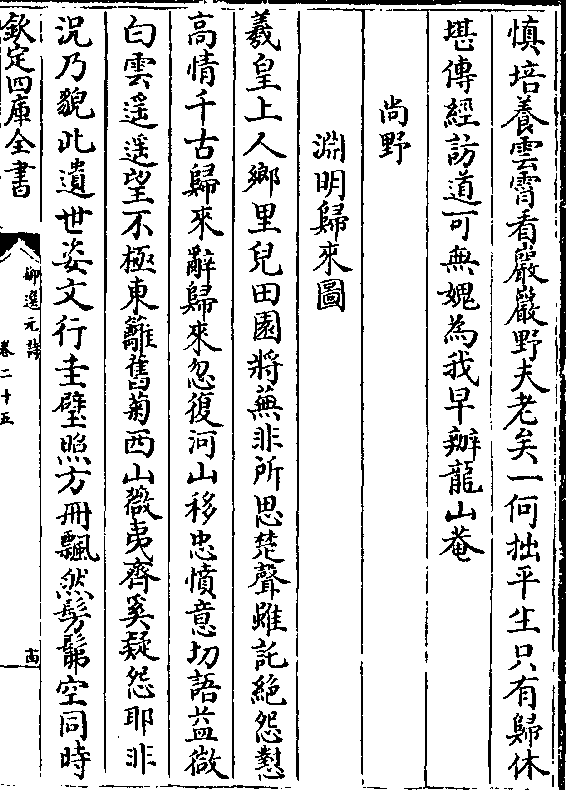 慎培養雲霄看巖巖野夫老矣一何拙平生只有歸休
堪傳經訪道可無媿為我早辦龍山菴
尚野
淵明歸來圖
羲皇上人鄉里兒田園將蕪非所思楚聲雖託絕怨懟
高情千古歸來辭歸來忽復河山移忠憤意切語益微
白雲遥遥望不極東籬舊菊西山薇夷齊奚疑怨耶非
況乃貌此遺世姿文行圭璧照方冊飄然髣髴空同時
欽定四庫全書
御選元詩
卷二十五
古